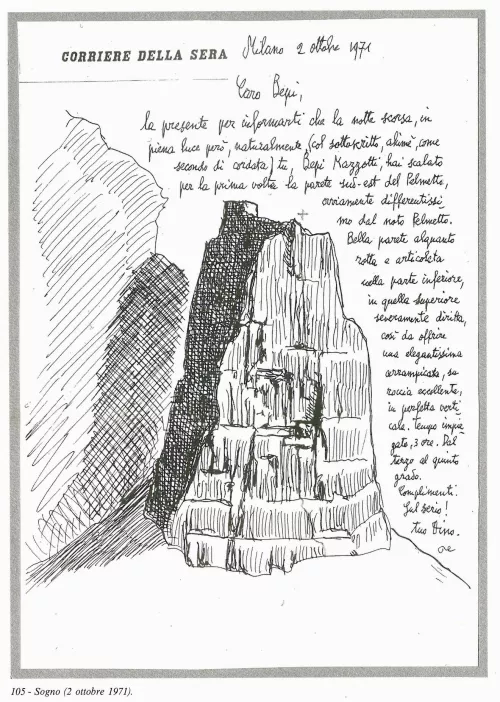 CORRIERE DELLA SERA
Milano 2 ottobre 1971
Caro Bepi,
la presente per informarti che la notte scorsa, in
piena luce però, naturalmente, (col sottoscritto, ahimè, come
secondo di cordata) tu, Bepi Mazzotti, hai scalato
per la prima volta la parete sud-est del Pelmette,
ovviamente differentissi
mo dal noto Pelmetto.
Bella parete alquanto
rotta e articolata
nella parte inferiore,
in quella superiore
severamente diritta,
così da offrire
una elegantissima
arrampicata, su
roccia eccellente,
in perfetta verti
cale. Tempo impie
gato, 3 ore. Dal
terzo al quinto
grado.
Complimenti.
Sul serio!
tuo Dino.
105 - Sogno (2 ottobre 1971).